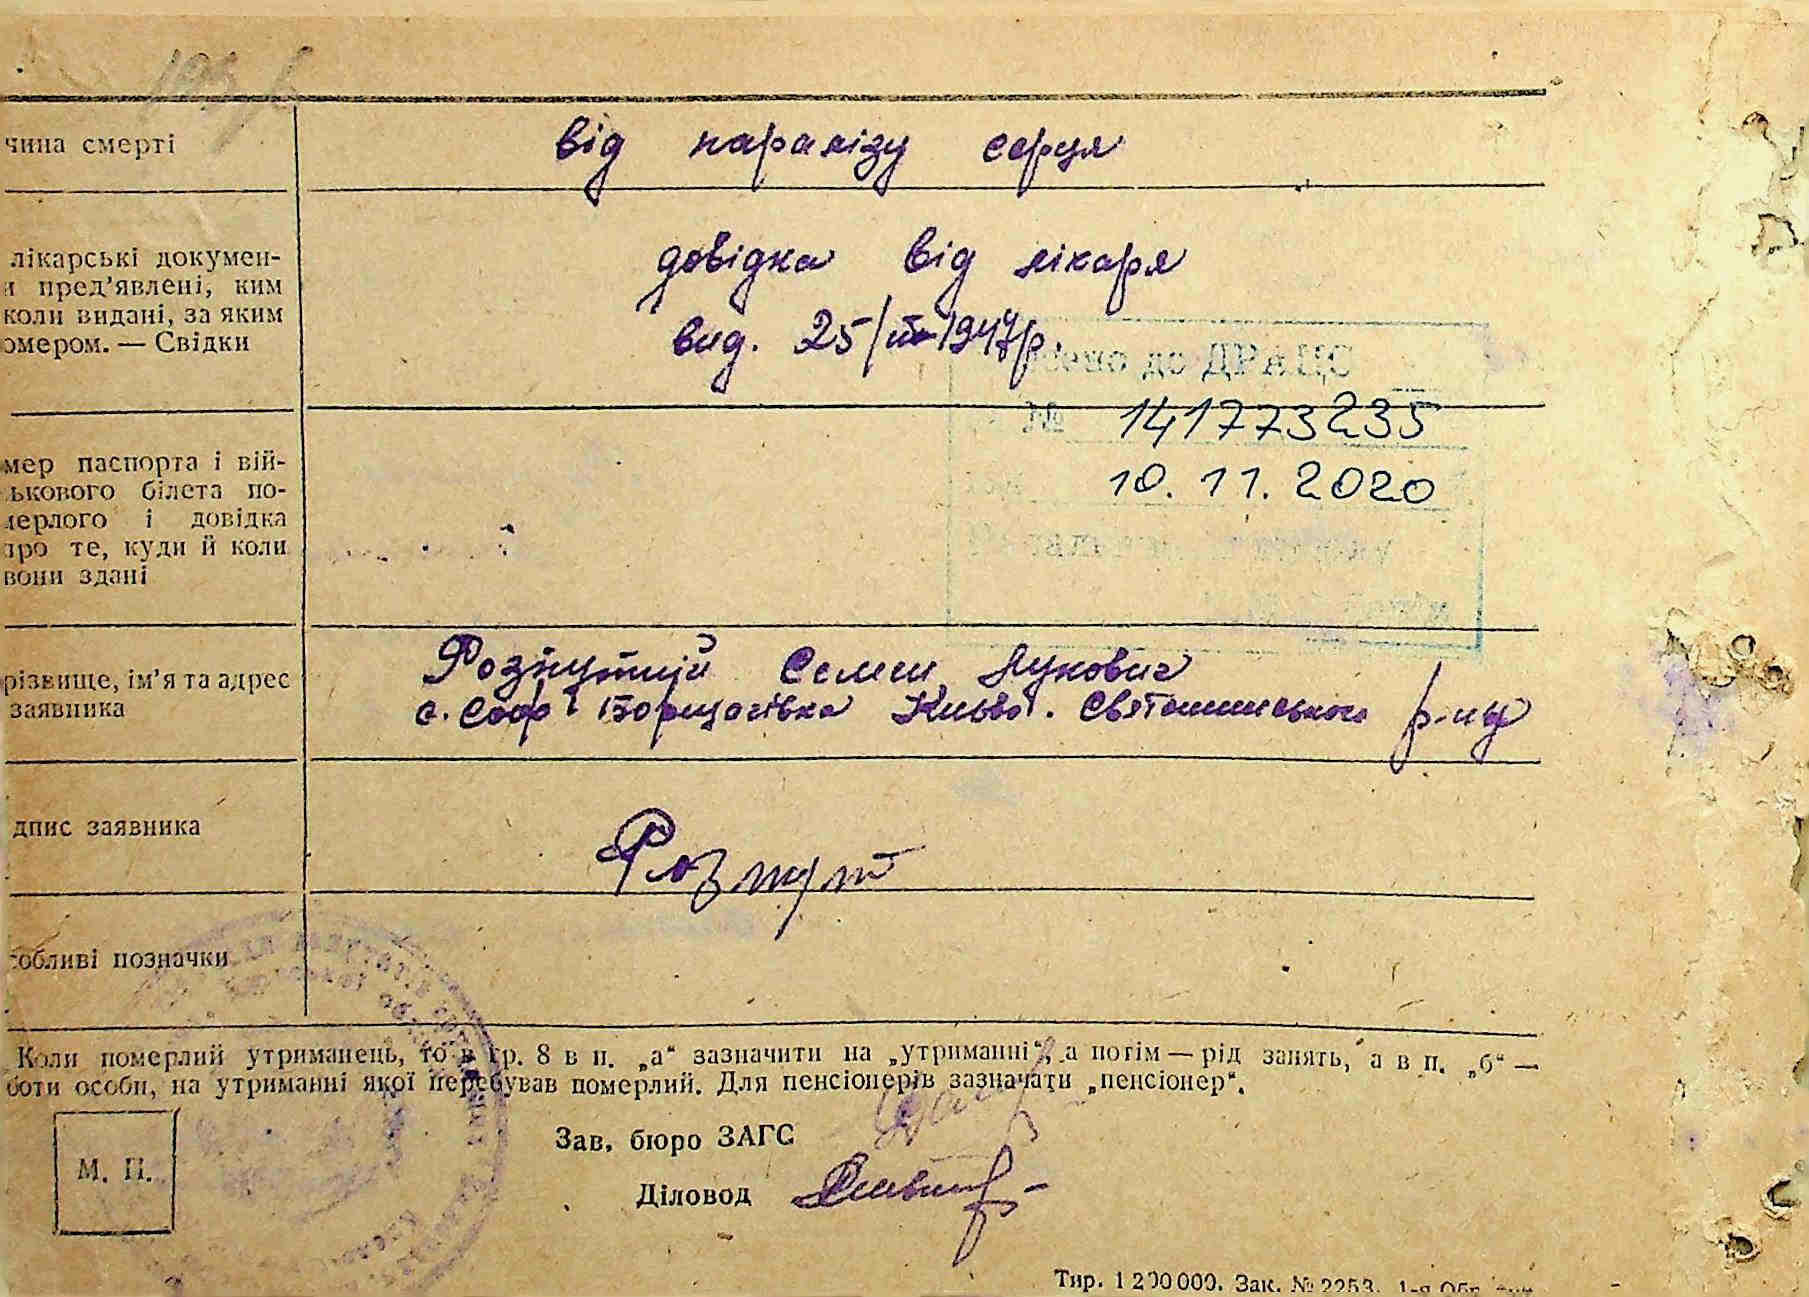 чина смерті
від паралізу серця
лікарські докумен-
и пред'явлені, ким
коли видані, за яким
омером. — Свідки
довідка від лікаря
вид. 25/ 1947р.
сено до ДРАЦС
№ 141773235
10. 11. 2020
мер паспорта і вій-
ькового білета по-
мерлого і довідка
про те, куди й коли
вони здані
різвище, ім'я та адрес
заявника
Розпутній Семен Лукович
с. Соф Борщагівка Києво. Святошинського р-ну
дпис заявника
Розпут
собливі позначки
Коли померлий утриманець, то в гр. 8 в п. „а“ зазначити на „утриманні“, а потім — рід занять, а в п. „б“ —
боти особи, на утриманні якої перебував померлий. Для пенсіонерів зазначати „пенсіонер“.
М. П.
Зав. бюро ЗАГС
Діловод
Тир. 1 200 000. Зак. № 2253. 1-я Обр.